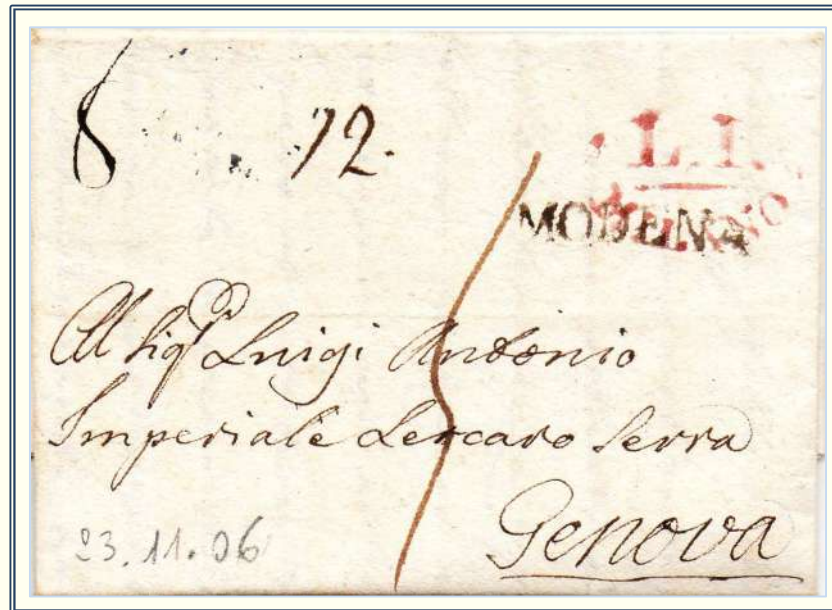 8 12.
L.I.
MODENA
Al Sig.r Luigi Antonio
Imperiale Lercaro Serra
Genova
23.11.06